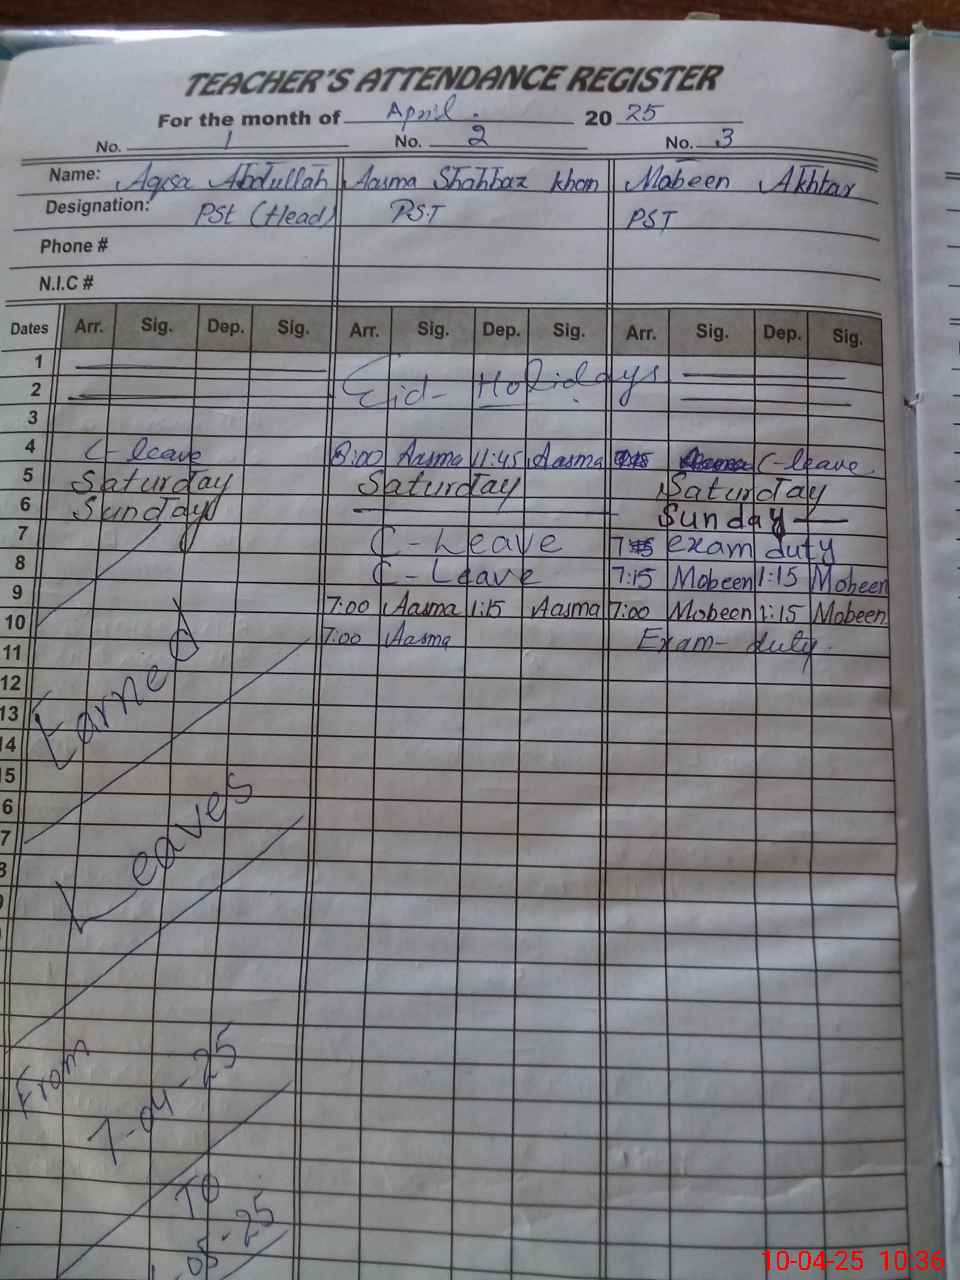 TEACHER'S ATTENDANCE REGISTER
For the month of April. 20 25
No. 1 No. 2 No. 3
Name: Aqsa Abdullah Aasma Shahbaz khan Mabeen Akhtar
Designation: PSt (Head) PST PST
Phone #
N.I.C #
Dates Arr. Sig. Dep. Sig. Arr. Sig. Dep. Sig. Arr. Sig. Dep. Sig.
1
Eid- Holidays
2
3
4 C- leave 8:00 Aasma 11:45 Aasma C-leave.
5 Saturday Saturday Saturday
6 Sunday Sunday
7 C-Leave exam duty
8 C-Leave 7:15 Mobeen 1:15 Mobeen
9 7:00 Aasma 1:15 Aasma 7:00 Mobeen 1:15 Mobeen
10 7:00 Aasma Exam- duty.
11
12
13
14
15
6
7
8
Earned
Leaves
From
7-04-25
TO
05-25
10-04-25 10:36